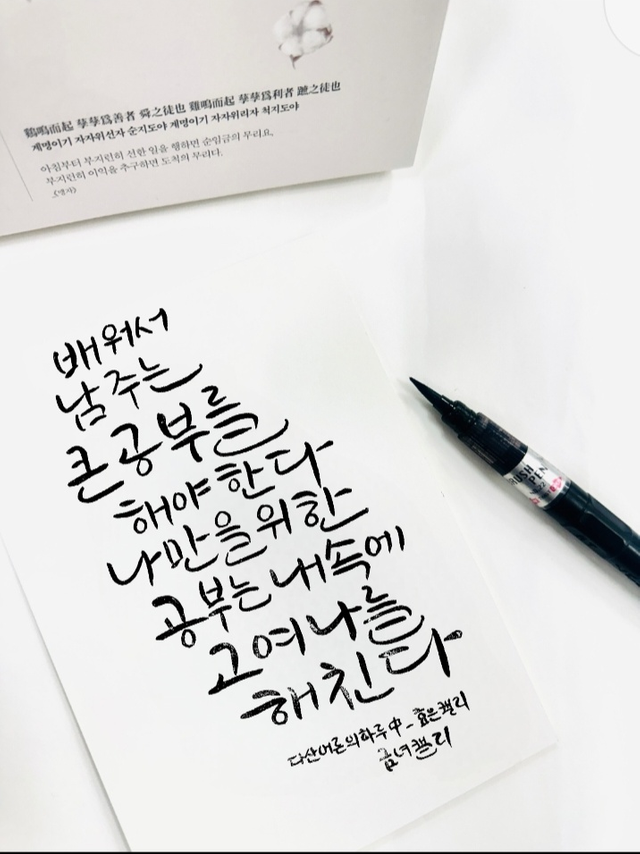 鷄鳴而起 孶孶爲善者 舜之徒也 雞鳴而起 孶孶爲利者 蹠之徒也
계명이기 자자위선자 순지도야 계명이기 자자위리자 척지도야
아침부터 부지런히 선한 일을 행하면 순임금의 무리요,
부지런히 이익을 추구하면 도척의 무리다.
《맹자》
배워서
남 주는
큰 공부를
해야 한다
나만을 위한
공부는 내 속에
고여 나를
해친다
다산어른의하루 中 - 효은캘리
금녀캘리
PEN